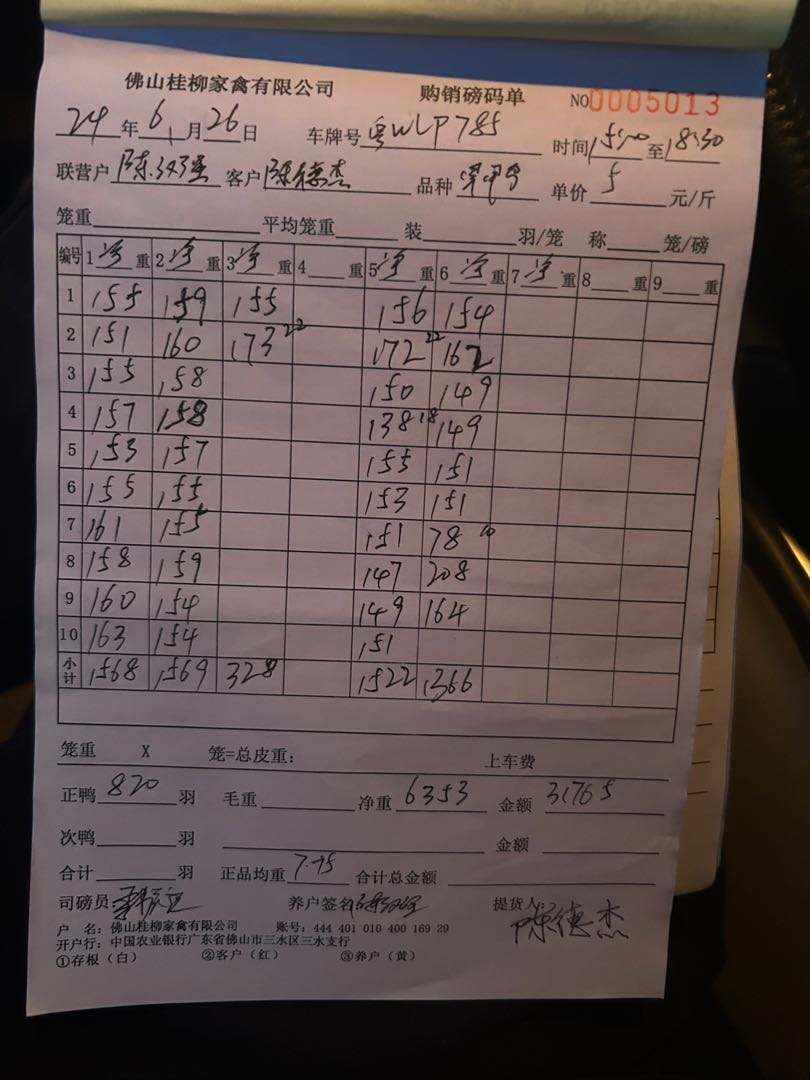 佛山桂柳家禽有限公司 购销磅码单 NO0005013
24年6月26日 车牌号 粤WLP785 时间15:00至18:30
联营户 陈 客户 陈德杰 品种 单价 5 元/斤
笼重 平均笼重 装 羽/笼 称 笼/磅
编号 1净重 2净重 3净重 4 重 5净重 6净重 7净重 8 重 9 重
1 155 159 155 156 154
2 151 160 173 22 172 22 162
3 155 158 150 149
4 157 158 138 18 149
5 153 157 155 151
6 155 155 153 151
7 161 155 151 78 10
8 158 159 147 208
9 160 154 149 164
10 163 154 151
小计 1568 1569 328 1522 1366
笼重 X 笼=总皮重: 上车费
正鸭 820 羽 毛重 净重 6353 金额 31765
次鸭 羽 金额
合计 羽 正品均重 7.75 合计总金额
司磅员 养户签名 提货人 陈德杰
户 名: 佛山桂柳家禽有限公司 账号: 444 401 010 400 169 29
开户行: 中国农业银行广东省佛山市三水区三水支行
①存根(白) ②客户(红) ③养户(黄)